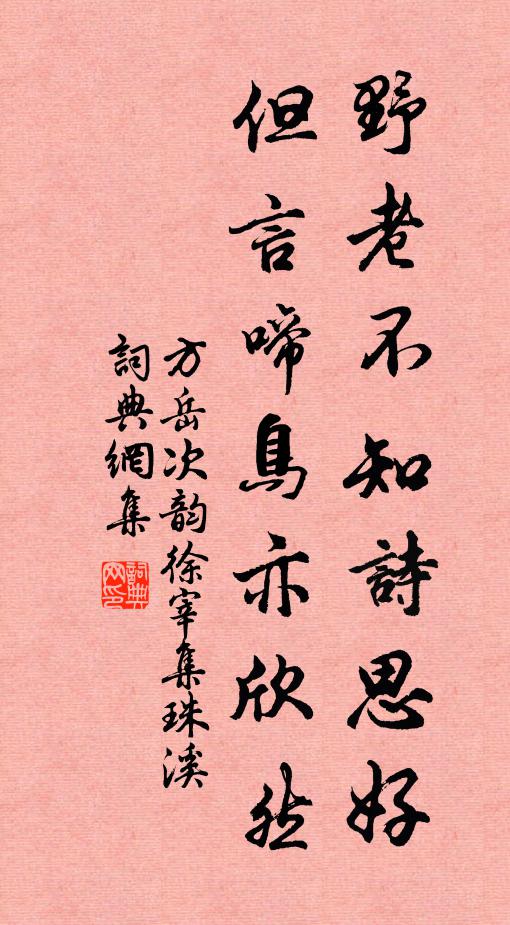 野老不知詩思好
但言啼鳥亦欣然
方岳次韵徐宰集珠溪
詞典網集
詞典網印